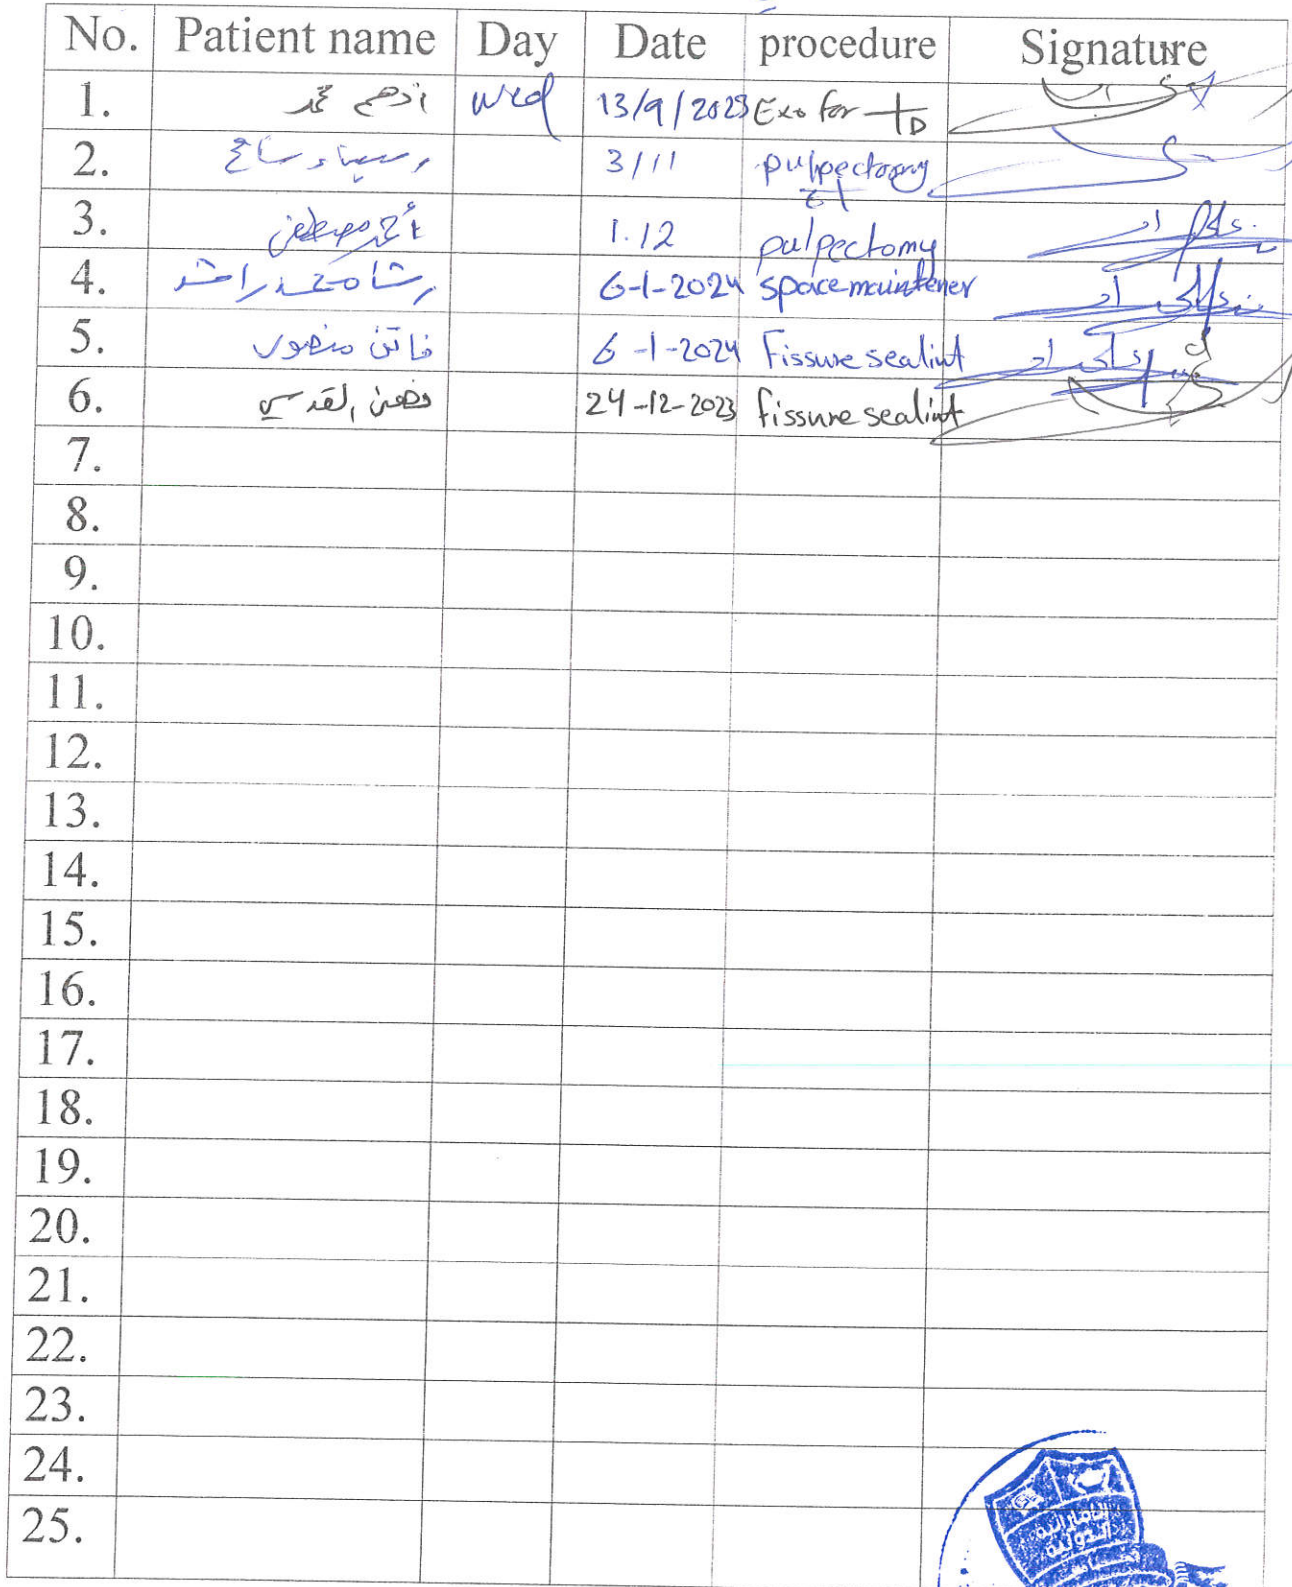 No. Patient name Day Date procedure Signature
1. ادهم محمد wed 13/9/2023 Exo for D
2. 3/11 pulpectomy
3. أحمد مصطفى 1.12 pulpectomy
4. رشا محمد راشد 6-1-2024 space maintener
5. فاتن منصور 6-1-2024 Fissure sealint
6. القدسي 24-12-2023 fissure sealint
7.
8.
9.
10.
11.
12.
13.
14.
15.
16.
17.
18.
19.
20.
21.
22.
23.
24.
25.
الإماراتية
الدولية